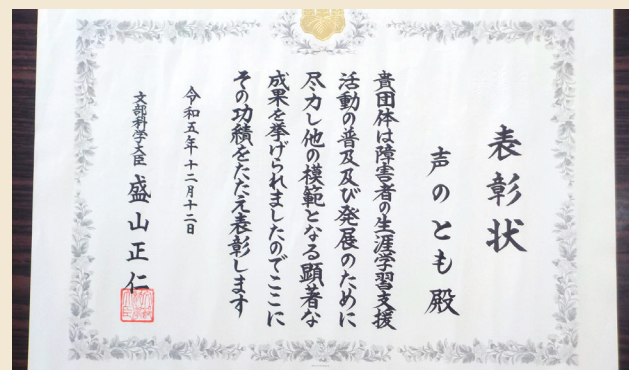 表彰状
声のとも殿
貴団体は障害者の生涯学習支援
活動の普及及び発展のために
尽力し他の模範となる顕著な
成果を挙げられましたのでここに
その功績をたたえ表彰します
令和五年十二月十二日
文部科学大臣 盛山正仁